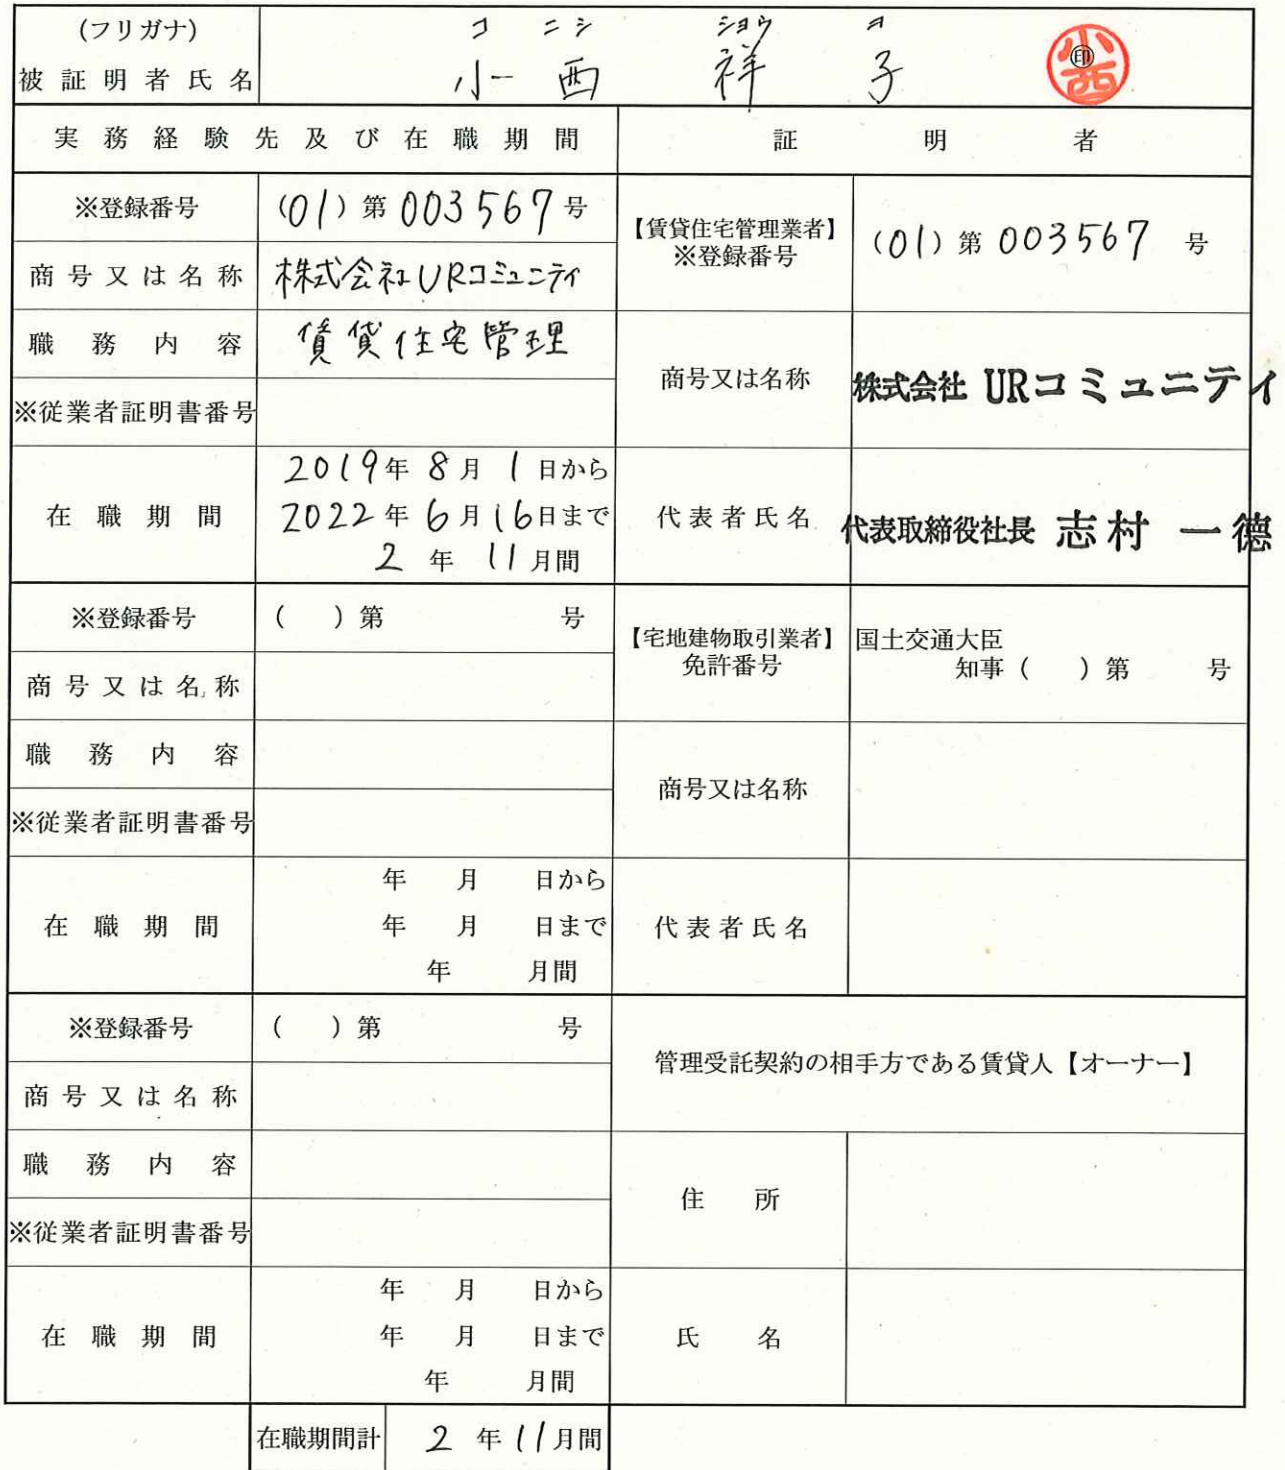 (フリガナ) コニシ ショウコ
被証明者氏名 小西 祥子 印 小西
実務経験先及び在職期間 証明者
※登録番号 (01)第003567号
【賃貸住宅管理業者】
※登録番号 (01)第003567号
商号又は名称 株式会社URコミュニティ
職務内容 賃貸住宅管理
※従業者証明書番号
商号又は名称 株式会社 URコミュニティ
在職期間
2019年8月1日から
2022年6月16日まで
2年11月間
代表者氏名 代表取締役社長 志村 一德
※登録番号 ( )第 号
【宅地建物取引業者】
免許番号
国土交通大臣
知事( )第 号
商号又は名称
職務内容
※従業者証明書番号
商号又は名称
在職期間
年 月 日から
年 月 日まで
年 月間
代表者氏名
※登録番号 ( )第 号
管理受託契約の相手方である賃貸人【オーナー】
商号又は名称
職務内容
※従業者証明書番号
住所
在職期間
年 月 日から
年 月 日まで
年 月間
氏名
在職期間計 2年11月間